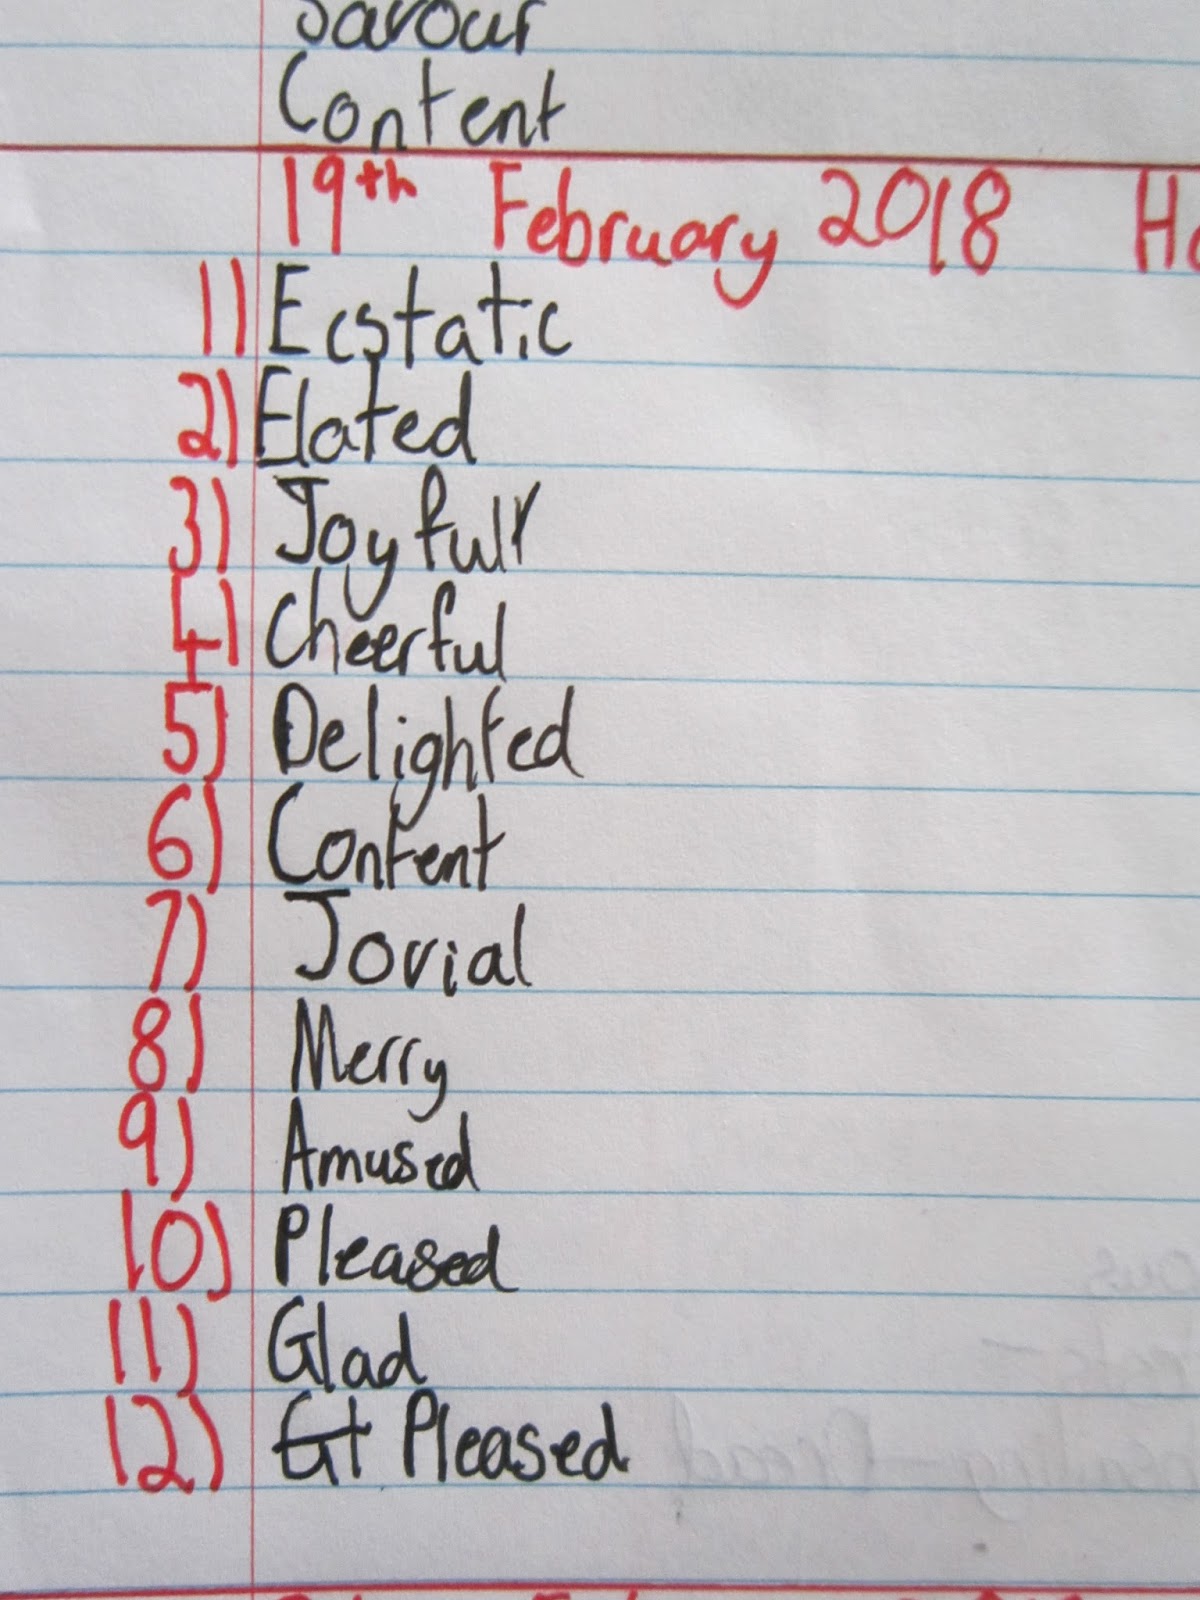 Savour
Content
19th February 2018
1) Ecstatic
2) Elated
3) Joyful
4) Cheerful
5) Delighted
6) Content
7) Jovial
8) Merry
9) Amused
10) Pleased
11) Glad
12) Gt Pleased